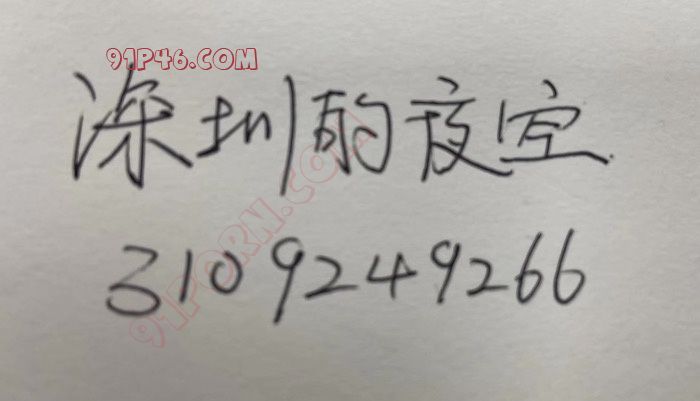 91P46.COM
深圳的夜空
91PORN.COM
3109249266